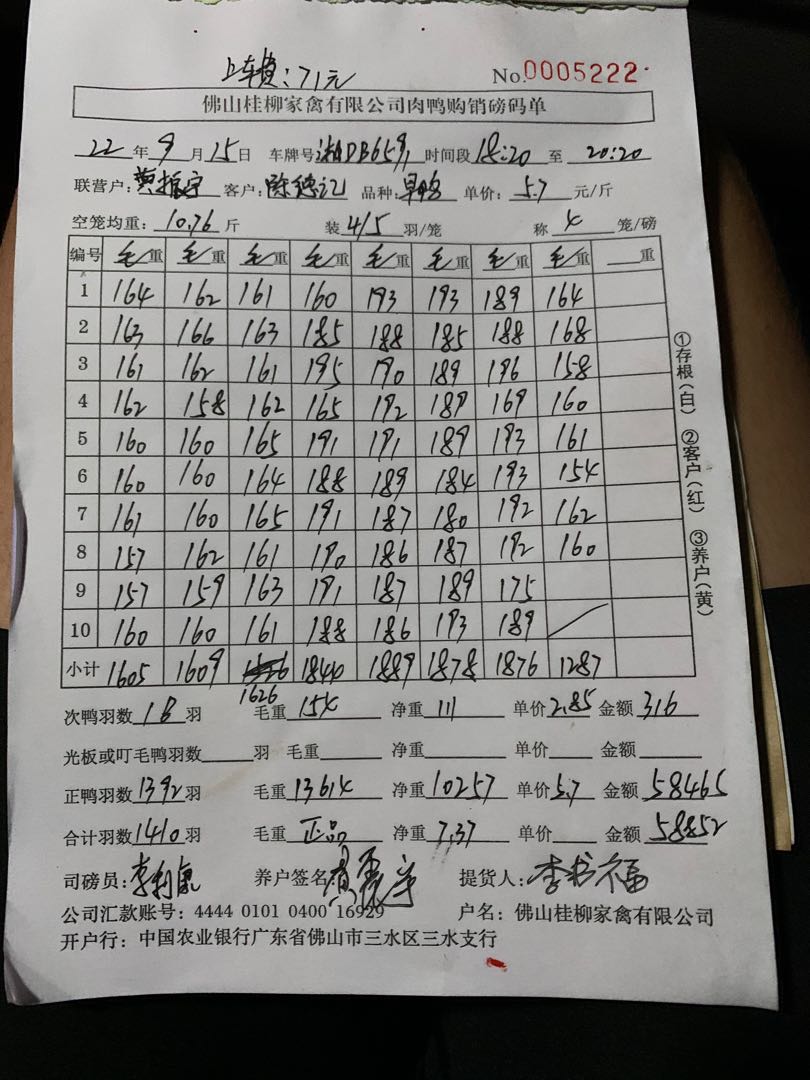 上车费：71元
No.0005222
佛山桂柳家禽有限公司肉鸭购销磅码单
22年9月15日 车牌号湘DB6591 时间段18:20至20:20
联营户：黄振宇 客户：陈德记 品种： 单价：5.7元/斤
空笼均重：10.76斤 装4/5羽/笼 称4笼/磅
编号 毛重 毛重 毛重 毛重 毛重 毛重 毛重 毛重 重
1 164 162 161 160 193 193 189 164
2 163 166 163 185 188 185 188 168
3 161 162 161 195 190 189 196 158
4 162 158 162 165 192 189 169 160
5 160 160 165 191 191 189 193 161
6 160 160 164 188 189 184 193 154
7 161 160 165 191 187 180 192 162
8 157 162 161 190 186 187 192 160
9 157 159 163 191 187 189 175
10 160 160 161 188 186 193 189
小计 1605 1609 1626 1844 1889 1878 1876 1287
①存根(白) ②客户(红) ③养户(黄)
次鸭羽数18羽 毛重154 净重111 单价2.85 金额316
光板或叮毛鸭羽数羽 毛重 净重 单价 金额
正鸭羽数1392羽 毛重13614 净重10257 单价5.7 金额58465
合计羽数1410羽 毛重正品 净重7.37 单价 金额58852
司磅员：李利 养户签名黄振宇 提货人：李书福
公司汇款账号：4444 0101 0400 16929 户名：佛山桂柳家禽有限公司
开户行：中国农业银行广东省佛山市三水区三水支行